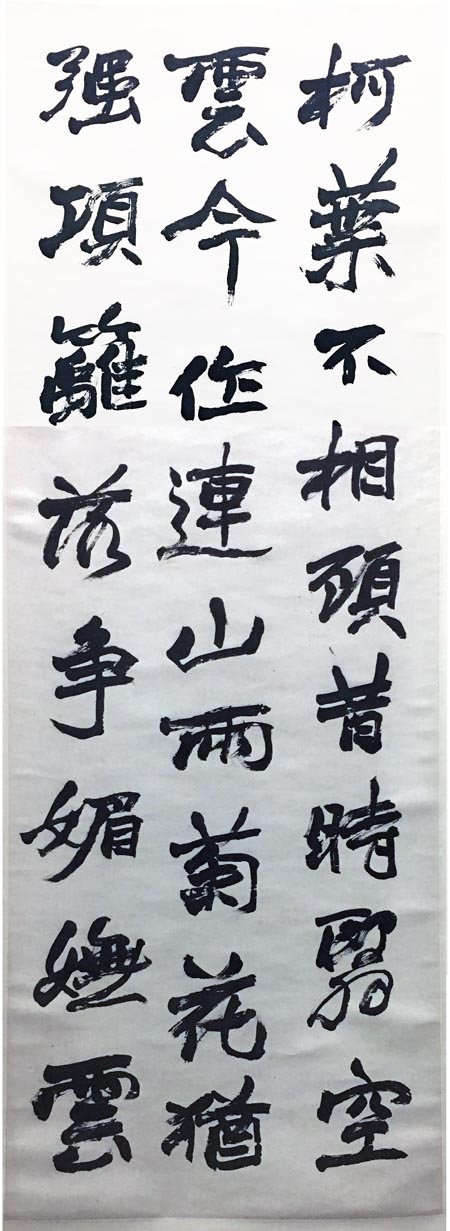 柯葉不相顧昔時翳空
雲今作連山雨菊花猶
强項籬落争媚嫵雲